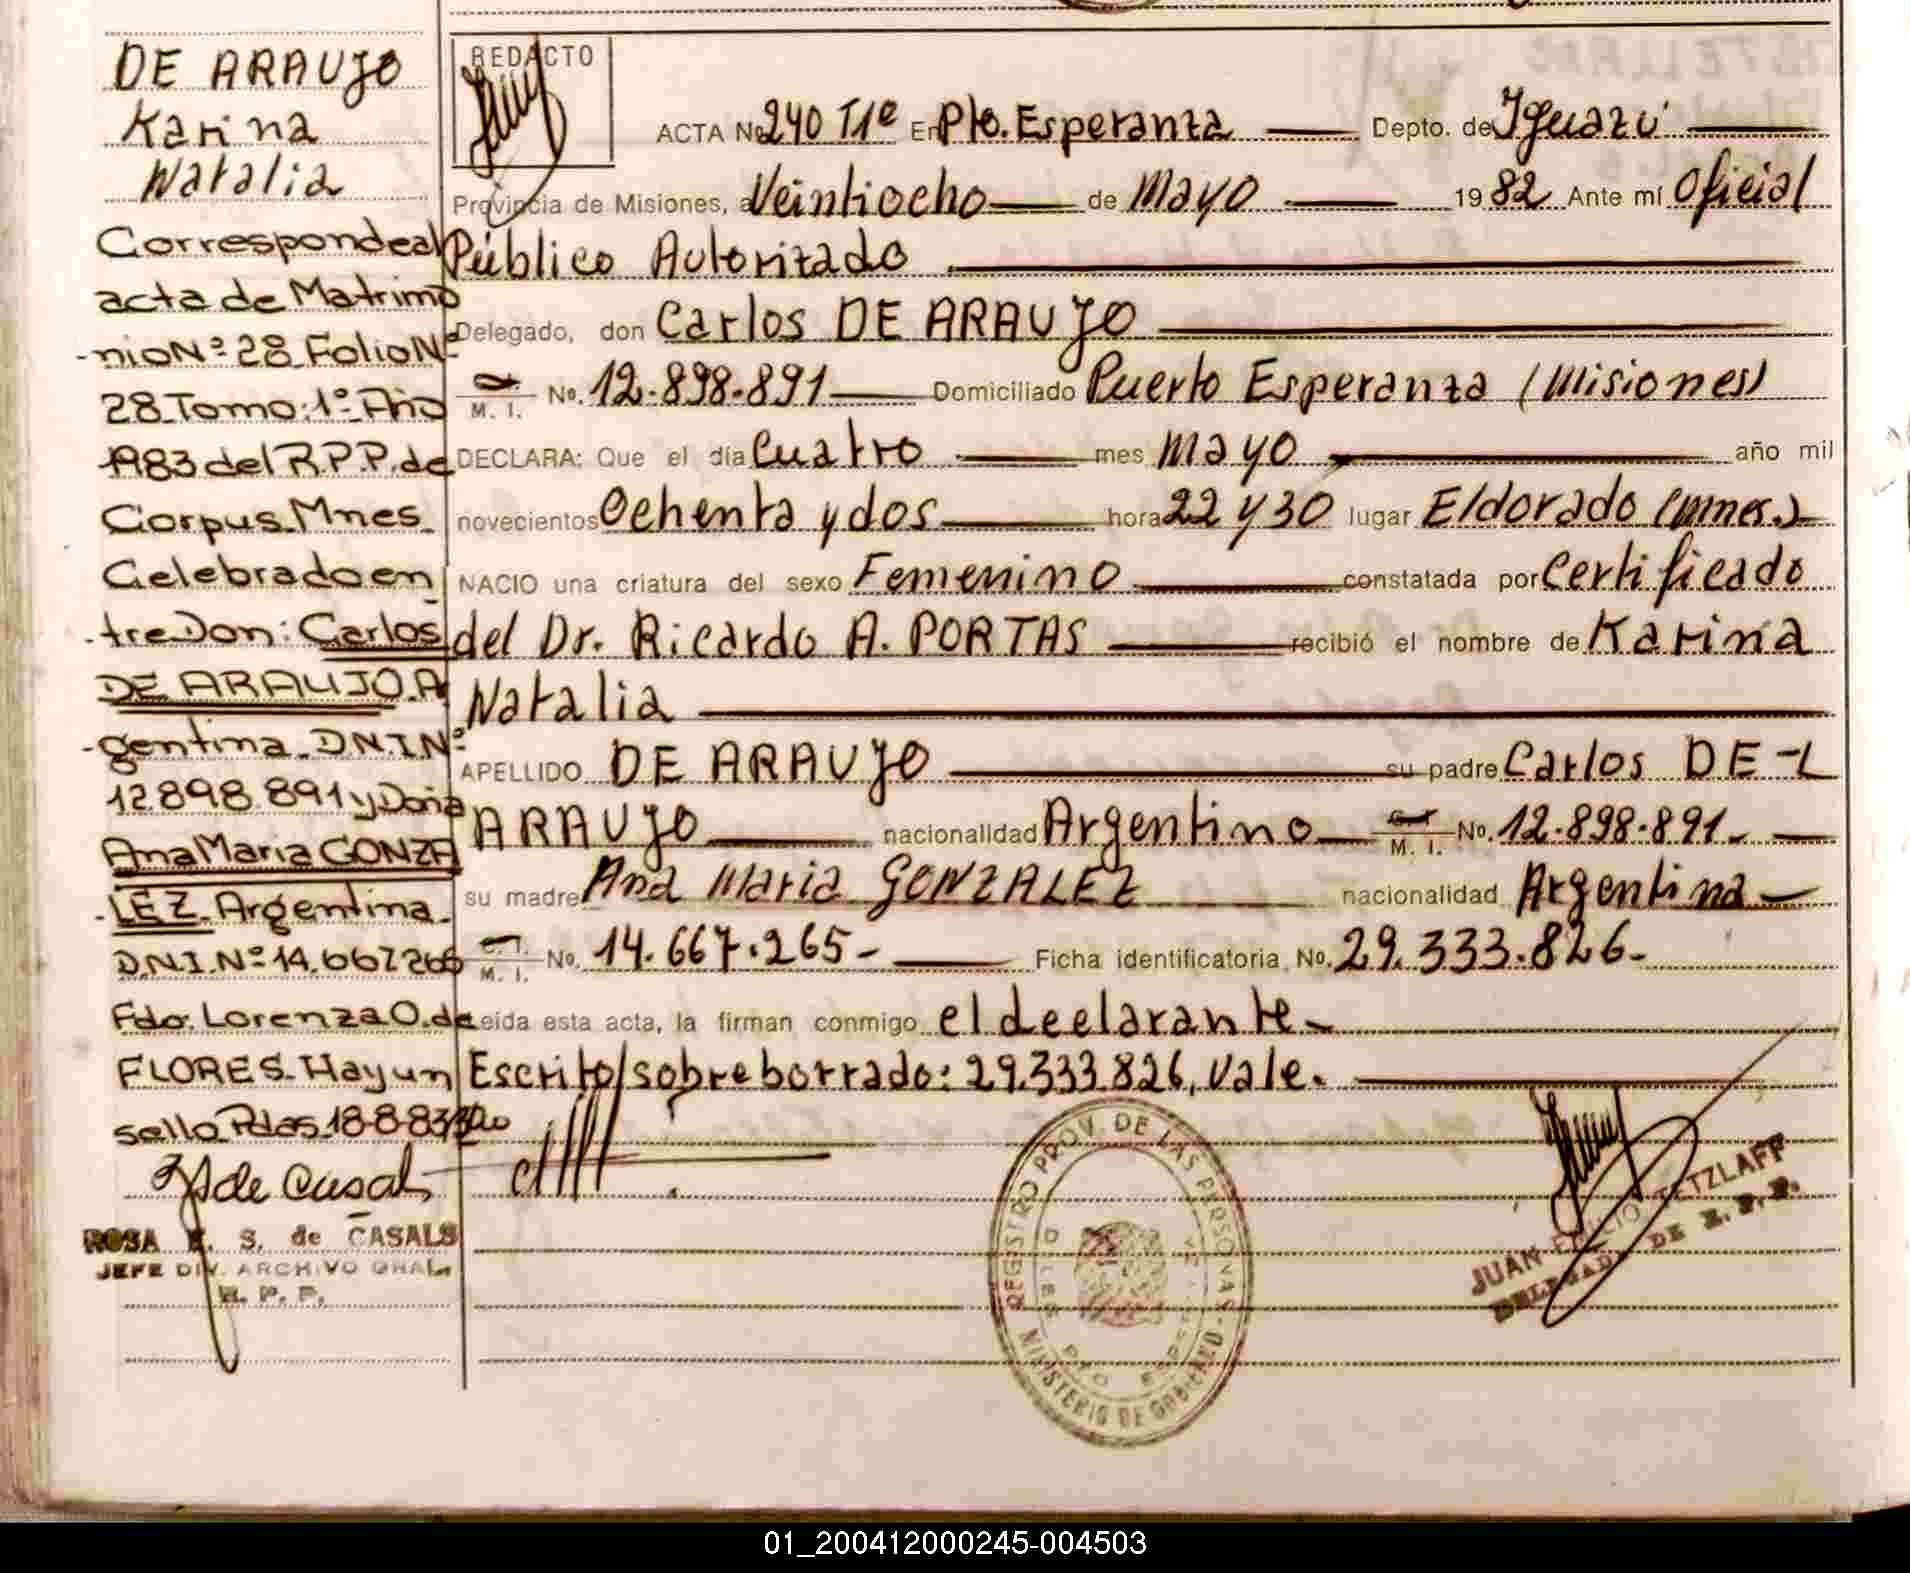 DE ARAUJO
Karina
Natalia
Correspondeal
acta de Matrimo
-nio Nº 28 Folio Nº
28 Tomo: 1º Año
1983 del R.P.P. de
Corpus Mnes.
Celebrado en
-tre Don: Carlos
DE ARAUJO. Ar
-gentina. D.N.I. Nº
12.898.891 y Doña
Ana Maria GONZA
-LEZ. Argentina.
D.N.I. Nº 14.667.265
Fdo: Lorenza O. de
FLORES. Hay un
sello Pdas. 18-8-83
ROSA E. S. de CASALS
JEFE DIV. ARCHIVO GRAL.
R. P. P.
REDACTO
ACTA Nº 240 T1º En Pto. Esperanza Depto. de Iguazú
Provincia de Misiones, a Veintiocho de Mayo 1982 Ante mí Oficial
Público Autorizado
Delegado, don Carlos DE ARAUJO
M. I. No. 12.898.891 Domiciliado Puerto Esperanza (Misiones)
DECLARA: Que el día Cuatro mes Mayo año mil
novecientos Ochenta y dos hora 22 y 30 lugar Eldorado (Mnes.)
NACIO una criatura del sexo Femenino constatada por Certificado
del Dr. Ricardo A. PORTAS recibió el nombre de Karina
Natalia
APELLIDO DE ARAUJO su padre Carlos DE
ARAUJO nacionalidad Argentino M. I. No. 12.898.891.
su madre Ana Maria GONZALEZ nacionalidad Argentina
C. I. M. I. No. 14.667.265- Ficha identificatoria No. 29.333.826-
Leída esta acta, la firman conmigo el declarante.
Escrito/sobreborrado: 29.333.826, Vale.
REGISTRO PROV. DE LAS PERSONAS
MINISTERIO DE GOBIERNO
JUAN TETZLAFF
DELEGADO DE R. P. P.
01_200412000245-004503